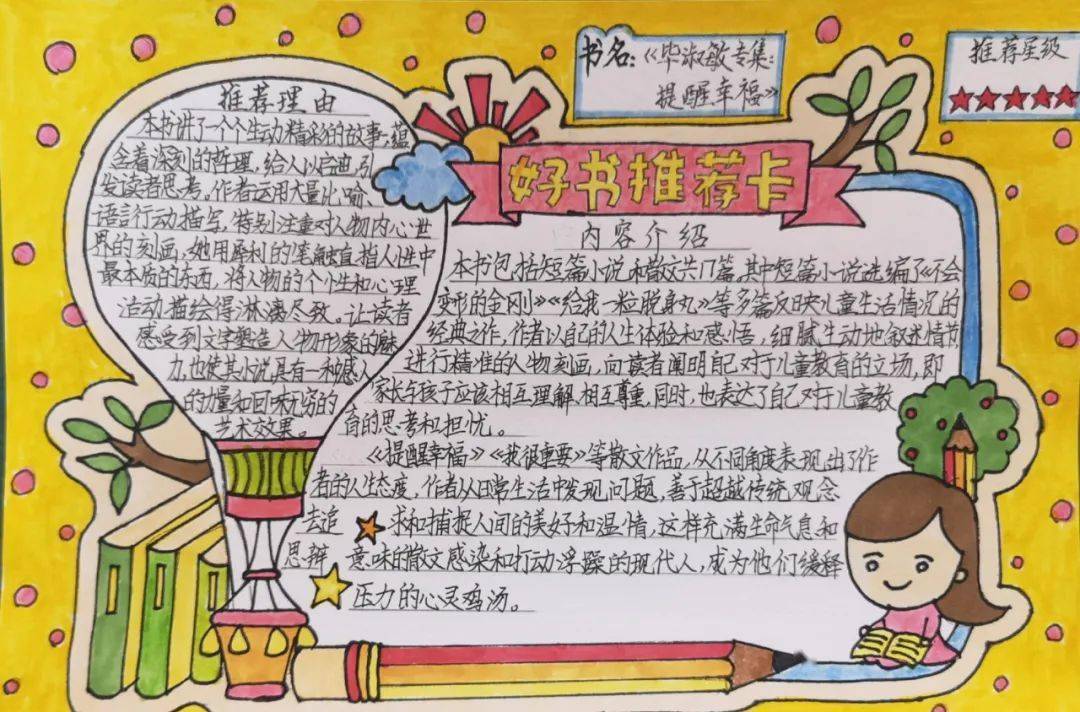 书名:《毕淑敏专集:
提醒幸福》
推荐星级
好书推荐卡
推荐理由
本书讲了一个个生动精彩的故事,蕴
含着深刻的哲理,给人以启迪,引
发读者思考。作者运用大量比喻、
语言行动描写,特别注重对人物内心世
界的刻画,她用犀利的笔触直指人性中
最本质的东西,将人物的个性和心理
活动描绘得淋漓尽致。让读者
感受到文字塑造人物形象的魅
力,也使其小说具有一种感人
的力量和回味无穷的
艺术效果。
内容介绍
本书包括短篇小说和散文共17篇。其中短篇小说选编了《不会
变形的金刚》《给我一粒脱身丸》等多篇反映儿童生活情况的
经典之作,作者以自己的人生体验和感悟,细腻生动地叙述情节,
进行精准的人物刻画,向读者阐明自己对于儿童教育的立场,即
家长与孩子应该相互理解,相互尊重,同时,也表达了自己对于儿童教
育的思考和担忧。
《提醒幸福》《我很重要》等散文作品,从不同角度表现出了作
者的人生态度,作者从日常生活中发现问题,善于超越传统观念
去追求和捕捉人间的美好和温情,这样充满生命气息和
思辩意味的散文感染和打动浮躁的现代人,成为他们缓释
压力的心灵鸡汤。